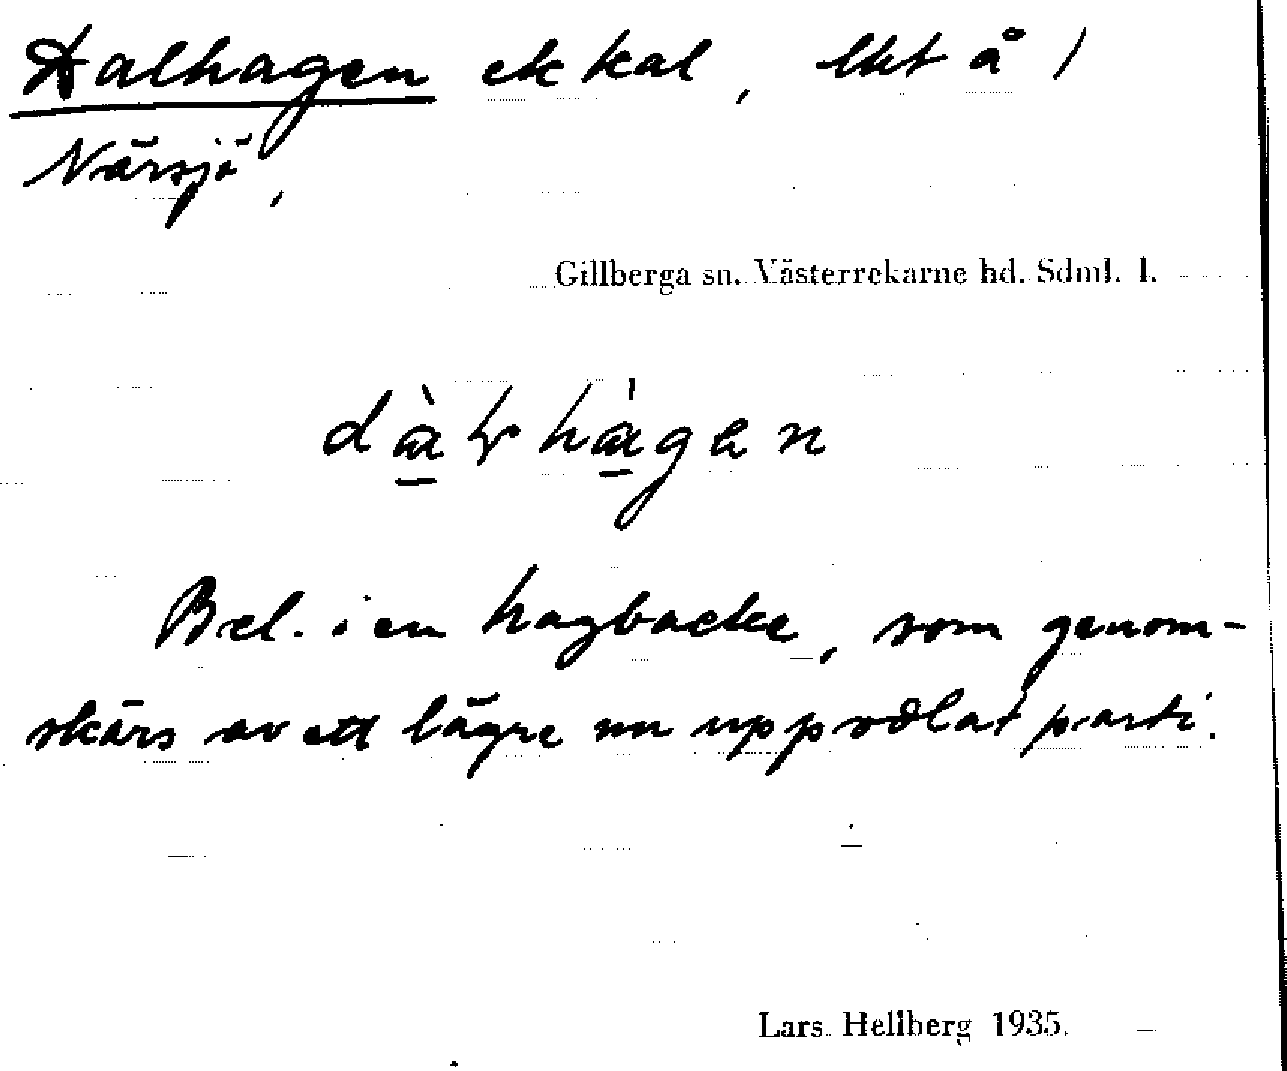 Dalhagen ek kal, lht å 1
Närsjö,
Gillberga sn. Västerrekarne hd. Sdml. l.
dàlhàgen
Bel. i en hagbacke, som genom-
skärs av ett lägre nu uppodlat parti.
Lars Hellberg 1935.